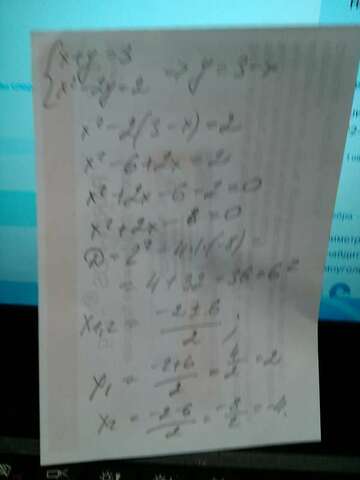 { x+y=3
x²-2y=2 ⇒ y=3-x
x²-2(3-x)=2
x²-6+2x=2
x²+2x-6-2=0
x²+2x-8=0
D=2²-4·1·(-8)=
=4+32=36=6²
x₁,₂ = (-2±6)/2 ;
x₁ = (-2+6)/2 = 4/2 = 2
x₂ = (-2-6)/2 = -8/2 = -4.